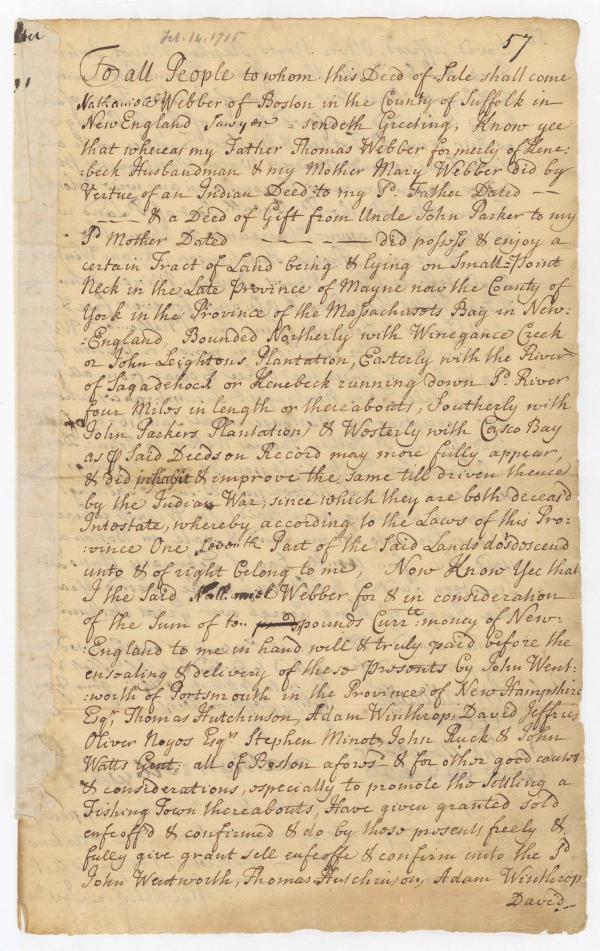 Feb. 14. 1715
57
To all People to whom this Deed of Sale shall come
Nathaniel Webber of Boston in the County of Suffolk in
New England Sawyer sendeth Greeting, Know yee
that whereas my Father Thomas Webber formerly of Kene=
:beck Husbandman & my Mother Mary Webber did by
Vertue of an Indian Deed to my Sd. Father Dated —
— — & a Deed of Gift from Uncle John Parker to my
Sd Mother Dated — — — — did possess & enjoy a
certain Tract of Land being & lying on Small Point
Neck in the Late Province of Mayne now the County of
York in the Province of the Massachusets Bay in New=
:England, Bounded Northerly with Winegance Creek
or John Leightons Plantation, Easterly with the River
of Sagadehock or Kenebeck running down Sd. River
four Miles in length or thereabouts, Southerly with
John Parkers Plantation) & Westerly with Casco Bay
as p Said Deeds on Record may more fully appear,
& did inhabit & improve the Same till driven thence
by the Indian War, since which they are both deceas'd
Intestate, whereby according to the Laws of this Pro=
:vince One Seventh Part of the Said Lands do's descend
unto & of right belong to me, Now Know Yee that
I the Said Nathaniel Webber for & in consideration
of the Sum of pounds Currtt: money of New=
:England to me in hand well & truly paid before the
ensealing & delivery of these Presents by John Went=
:worth of Portsmouth in the Province of New Hampshire
Esqr, Thomas Hutchinson, Adam Winthrop, David Jeffries
Oliver Noyes Esqrs Stephen Minot, John Ruck & John
Watts Gent: all of Boston aforesd & for other good causes
& considerations, especially to promote the Settling a
Fishing Town thereabouts, Have given granted sold
enfeoff'd & confirmed & do by these presents freely &
fully give grant sell enfeoffe & confirm unto the Sd
John Wentworth, Thomas Hutchinson, Adam Winthrop
David